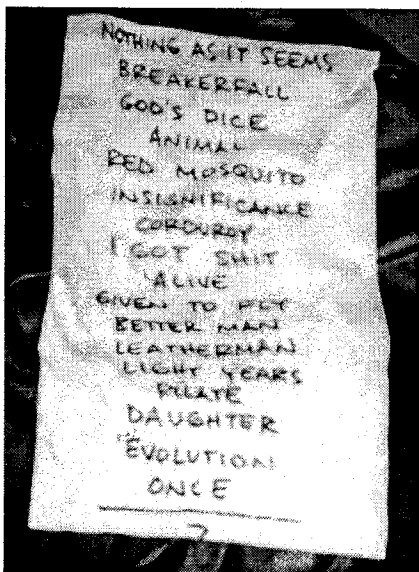 NOTHING AS IT SEEMS
BREAKERFALL
GOD'S DICE
ANIMAL
RED MOSQUITO
INSIGNIFICANCE
CORDUROY
I GOT SHIT
ALIVE
GIVEN TO FLY
BETTER MAN
LEATHERMAN
LIGHT YEARS
PILATE
DAUGHTER
EVOLUTION
ONCE
?